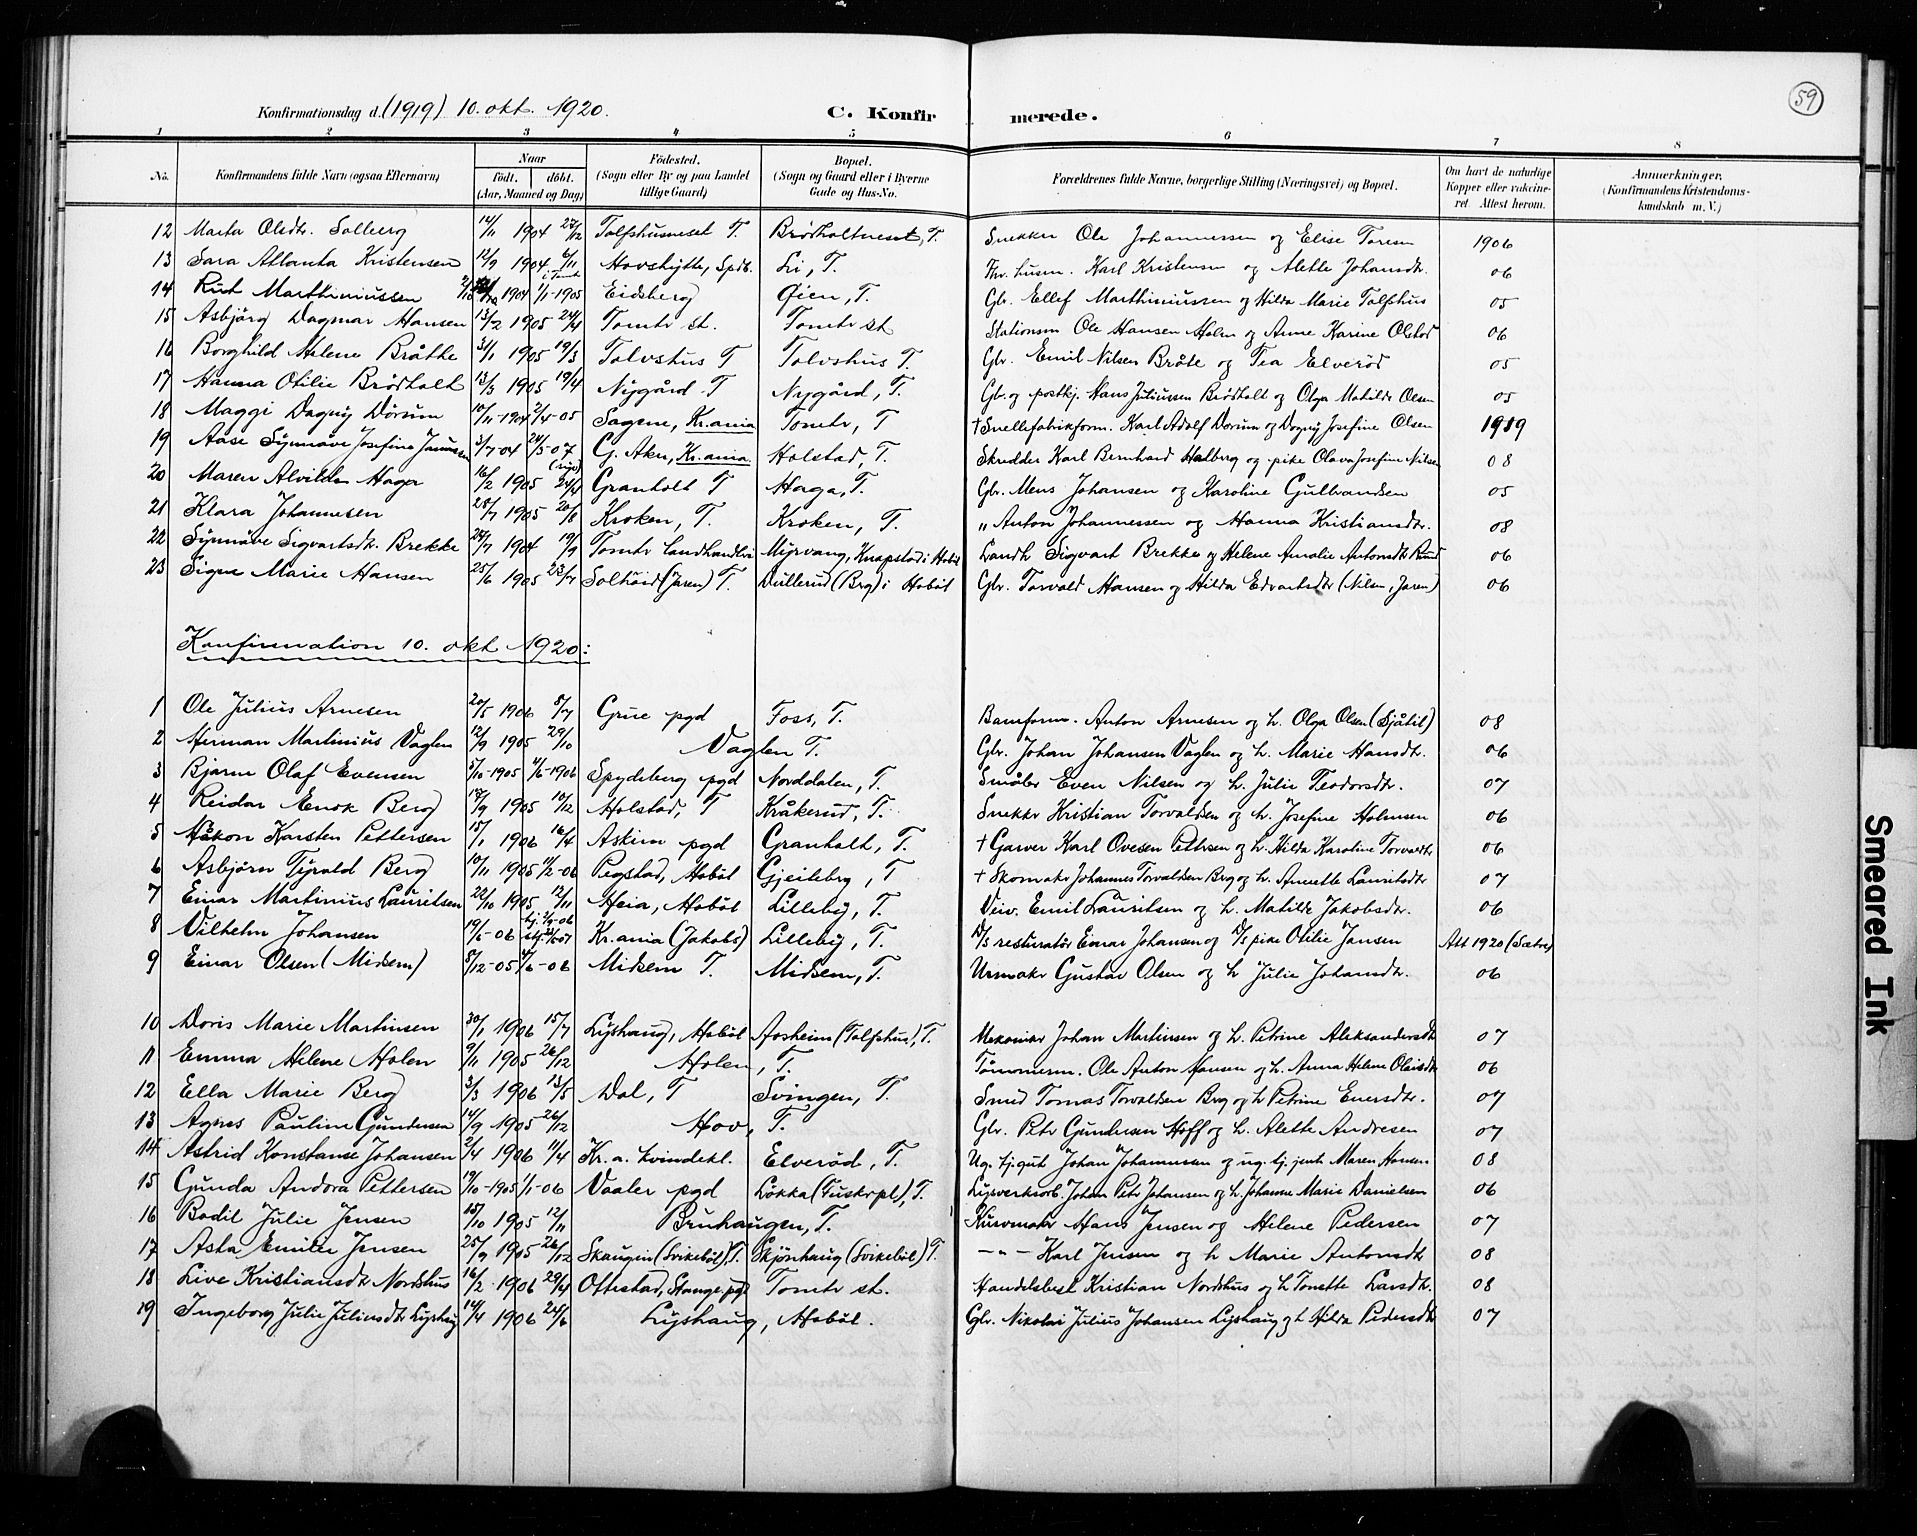 59
Konfirmationsdag d. (1919) 10. okt. 1920. C. Konfirmerede.
1 2 3 4 5 6 7 8
No. Konfirmandens fulde Navn (ogsaa Efternavn) Naar født. døbt. (Aar, Maaned og Dag) Fødested. (Sogn eller By og paa Landet tillige Gaard) Bopæl. (Sogn og Gaard eller i Byerne Gade og Hus-No. Forældrenes fulde Navne, borgerlige Stilling (Næringsvei) og Bopæl. Om havt de naturlige Kopper eller vakcineret Attest herom. Anmerkninger, (Konfirmandens Kristendomskundskab m. V.)
12 Marta Olsdtr. Solberg 14/11 1904 27/12 Tolfshusneset T. Brødholtneset, T. Snekker Ole Johannessen og Elise Toresen 1906
13 Sara Atlanta Kristensen 12/9 1904 6/11 Hovshytte, Spdb. Li, T. Thv. husm. Karl Kristensen og Alette Johansdtr. 06
14 Rut Marthiniussen 2/10 1904 1/1-1905 Eidsberg Øien, T. Gbr. Ellef Marthiniussen og Hilda Marie Tolfshus 05
15 Asbjørg Dagmar Hansen 13/2 1905 24/4 Tomter st. Tomter st Stationsm Ole Hansen Holm og Anne Karine Olstad 06
16 Borghild Helene Bråthe 31/1 1905 19/3 Tolvshus T Tolvshus T. Gbr. Emil Nilsen Bråte og Tea Elverød 05
17 Hanna Otilie Brødholt 13/3 1905 19/4 Nygård T Nygård, T. Gbr. og postkj. Hans Juliussen Brødholt og Olga Matilde Olsen 05
18 Maggi Dagny Dørum 10/11-1904 2/4-05 Sagene, Kr.ania Tomter, T † Snellefabrikform. Karl Adolf Dørum og Dagny Josefine Olsen 1919
19 Aase Synnøve Josefine 3/7-04 24/5-07 G. Aker, Kr.ania. Holstad, T. Skredder Karl Bernhard Halberg og pike Olava Josefine Nilsen 08
20 Maren Alvilde Haga 16/2 1905 24/4 Granholt T Haga, T. Gbr. Mens Johansen og Karoline Gulbrandsen 05
21 Klara Johannesen 28/7 1905 20/8 Kroken, T. Kroken, T. " Anton Johannessen og Hanna Kristiansdtr. 08
22 Synnøve Sigvartsdtr. Brekke 24/7 1904 19/9 Tomter Landhandleri Myrvang, Knapstad i Hobøl Landh. Sigvart Brekke og Helene Amalie Antonsdtr 06
23 Signe Marie Hansen 25/6 1905 23/7 Solhøid (Jaren) T. Dullerud (Brg) i Hobøl Gbr. Torvald Hansen og Hilda Edvartsdtr (Nilsen, Jaren) 06
Konfirmation 10. okt 1920:
1 Ole Julius Arnesen 20/5 1906 8/7 Grue pgd Foss, T. Baneform. Anton Arnesen og h. Olga Olsen (Sjåtil) 08
2 Herman Martinius Vaglen 12/9 1905 29/10 Vaglen T. Gbr. Johan Johansen Vaglen og h. Marie Hansdtr. 06
3 Bjarne Olaf Evensen 5/10-1905 4/6-1906 Spydeberg pgd Norddalen, T. Småbr Even Nilsen og h. Julie Teodorsdtr. 07
4 Reidar Enok Berg 18/9 1905 10/12 Holstad, T Kråkerud, T. Snekker Kristian Torvaldsen og h. Josefine Holmsen 06
5 Håkon Karsten Pettersen 15/1 1906 16/4 Askim pgd Granholt, T. † Garver Karl Ovesen Pettersen og h. Hilda Karoline Torvaldtr 06
6 Asbjørn Tyvald Berg 10/11 1905 11/2-06 Pegstad, Hobøl Gjeileberg, T † Skomaker Johannes Torvaldsen Berg og h. Annette Lauritsdtr 07
7 Einar Martinius Lauritsen 22/10 1905 12/11 Heia, Hobøl Lilleby, T. Veiv. Emil Lauritsen og h. Matilde Jakobsdtr. 06
8 Vilhelm Johansen 19/6-06 Kr.ania (Jakobs) Lilleby, T. D/S restauratør Einar Johansen og D/S pike Otilie Jansen Att 1920 (Sætre)
9 Einar Olsen (Midsem) 8/12-05 4/6-06 Midsem T. Midsem, T. Urmaker Gustav Olsen og h Julie Johansdtr. 06
10 Doris Marie Martinsen 30/1 1906 15/7 Lyshaug, Hobøl Aasheim (Tolfshus), T. Mekaniker Johan Martinsen og h. Petrine Aleksandersdtr 07
11 Emma Helene Holen 9/11 1905 26/12 Holen, T. Tømmerm. Ole Anton Hansen og h. Anna Helene Olaisdtr 06
12 Ella Marie Berg 3/3 1906 13/5 Dal, T Svingen, T. Smed Tomas Torvaldsen Berg og h Petrine Enersdtr. 07
13 Agnes Pauline Gundersen 14/9 1905 26/12 Hov, T. Gbr. Peter Gundersen Hoff og h. Alette Andresen 07
14 Astrid Konstanse Johansen 2/4 1906 11/4 Kr.a. kvindekl. Elverød, T. Ug. tj.gut Johan Johannessen og ug. tj. jente Maren Hansen 08
15 Gunda Andora Pettersen 19/10-1905 1/1-06 Vaaler pgd Løkka (Fuskerpl), T. Lysverksarb. Johan Peter Johansen og h. Johanne Marie Danielsen 06
16 Bodil Julie Jensen 15/10 1905 12/11 Bruhaugen, T. Kurvmaker Hans Jensen og Helene Pedersen 07
17 Asta Emilie Jensen 25/9 1905 26/12 Skaugen (Svikebøl), T. Skjønhaug (Svikebøl) T. —"— Karl Jensen og h Marie Antonsdtr 08
18 Live Kristiansdtr Nordshus 16/2 1906 29/4 Ottestad, Stange pgd Tomter st. Handelsbest Kristian Nordshus og h Tonette Larsdtr. 08
19 Ingeborg Julie Juliusdtr Lyshaug 14/4 1906 24/6 Lyshaug, Hobøl. Gbr. Nikolai Julius Johansen Lyshaug og h Hilda Pedersdtr 07
Smeared Ink